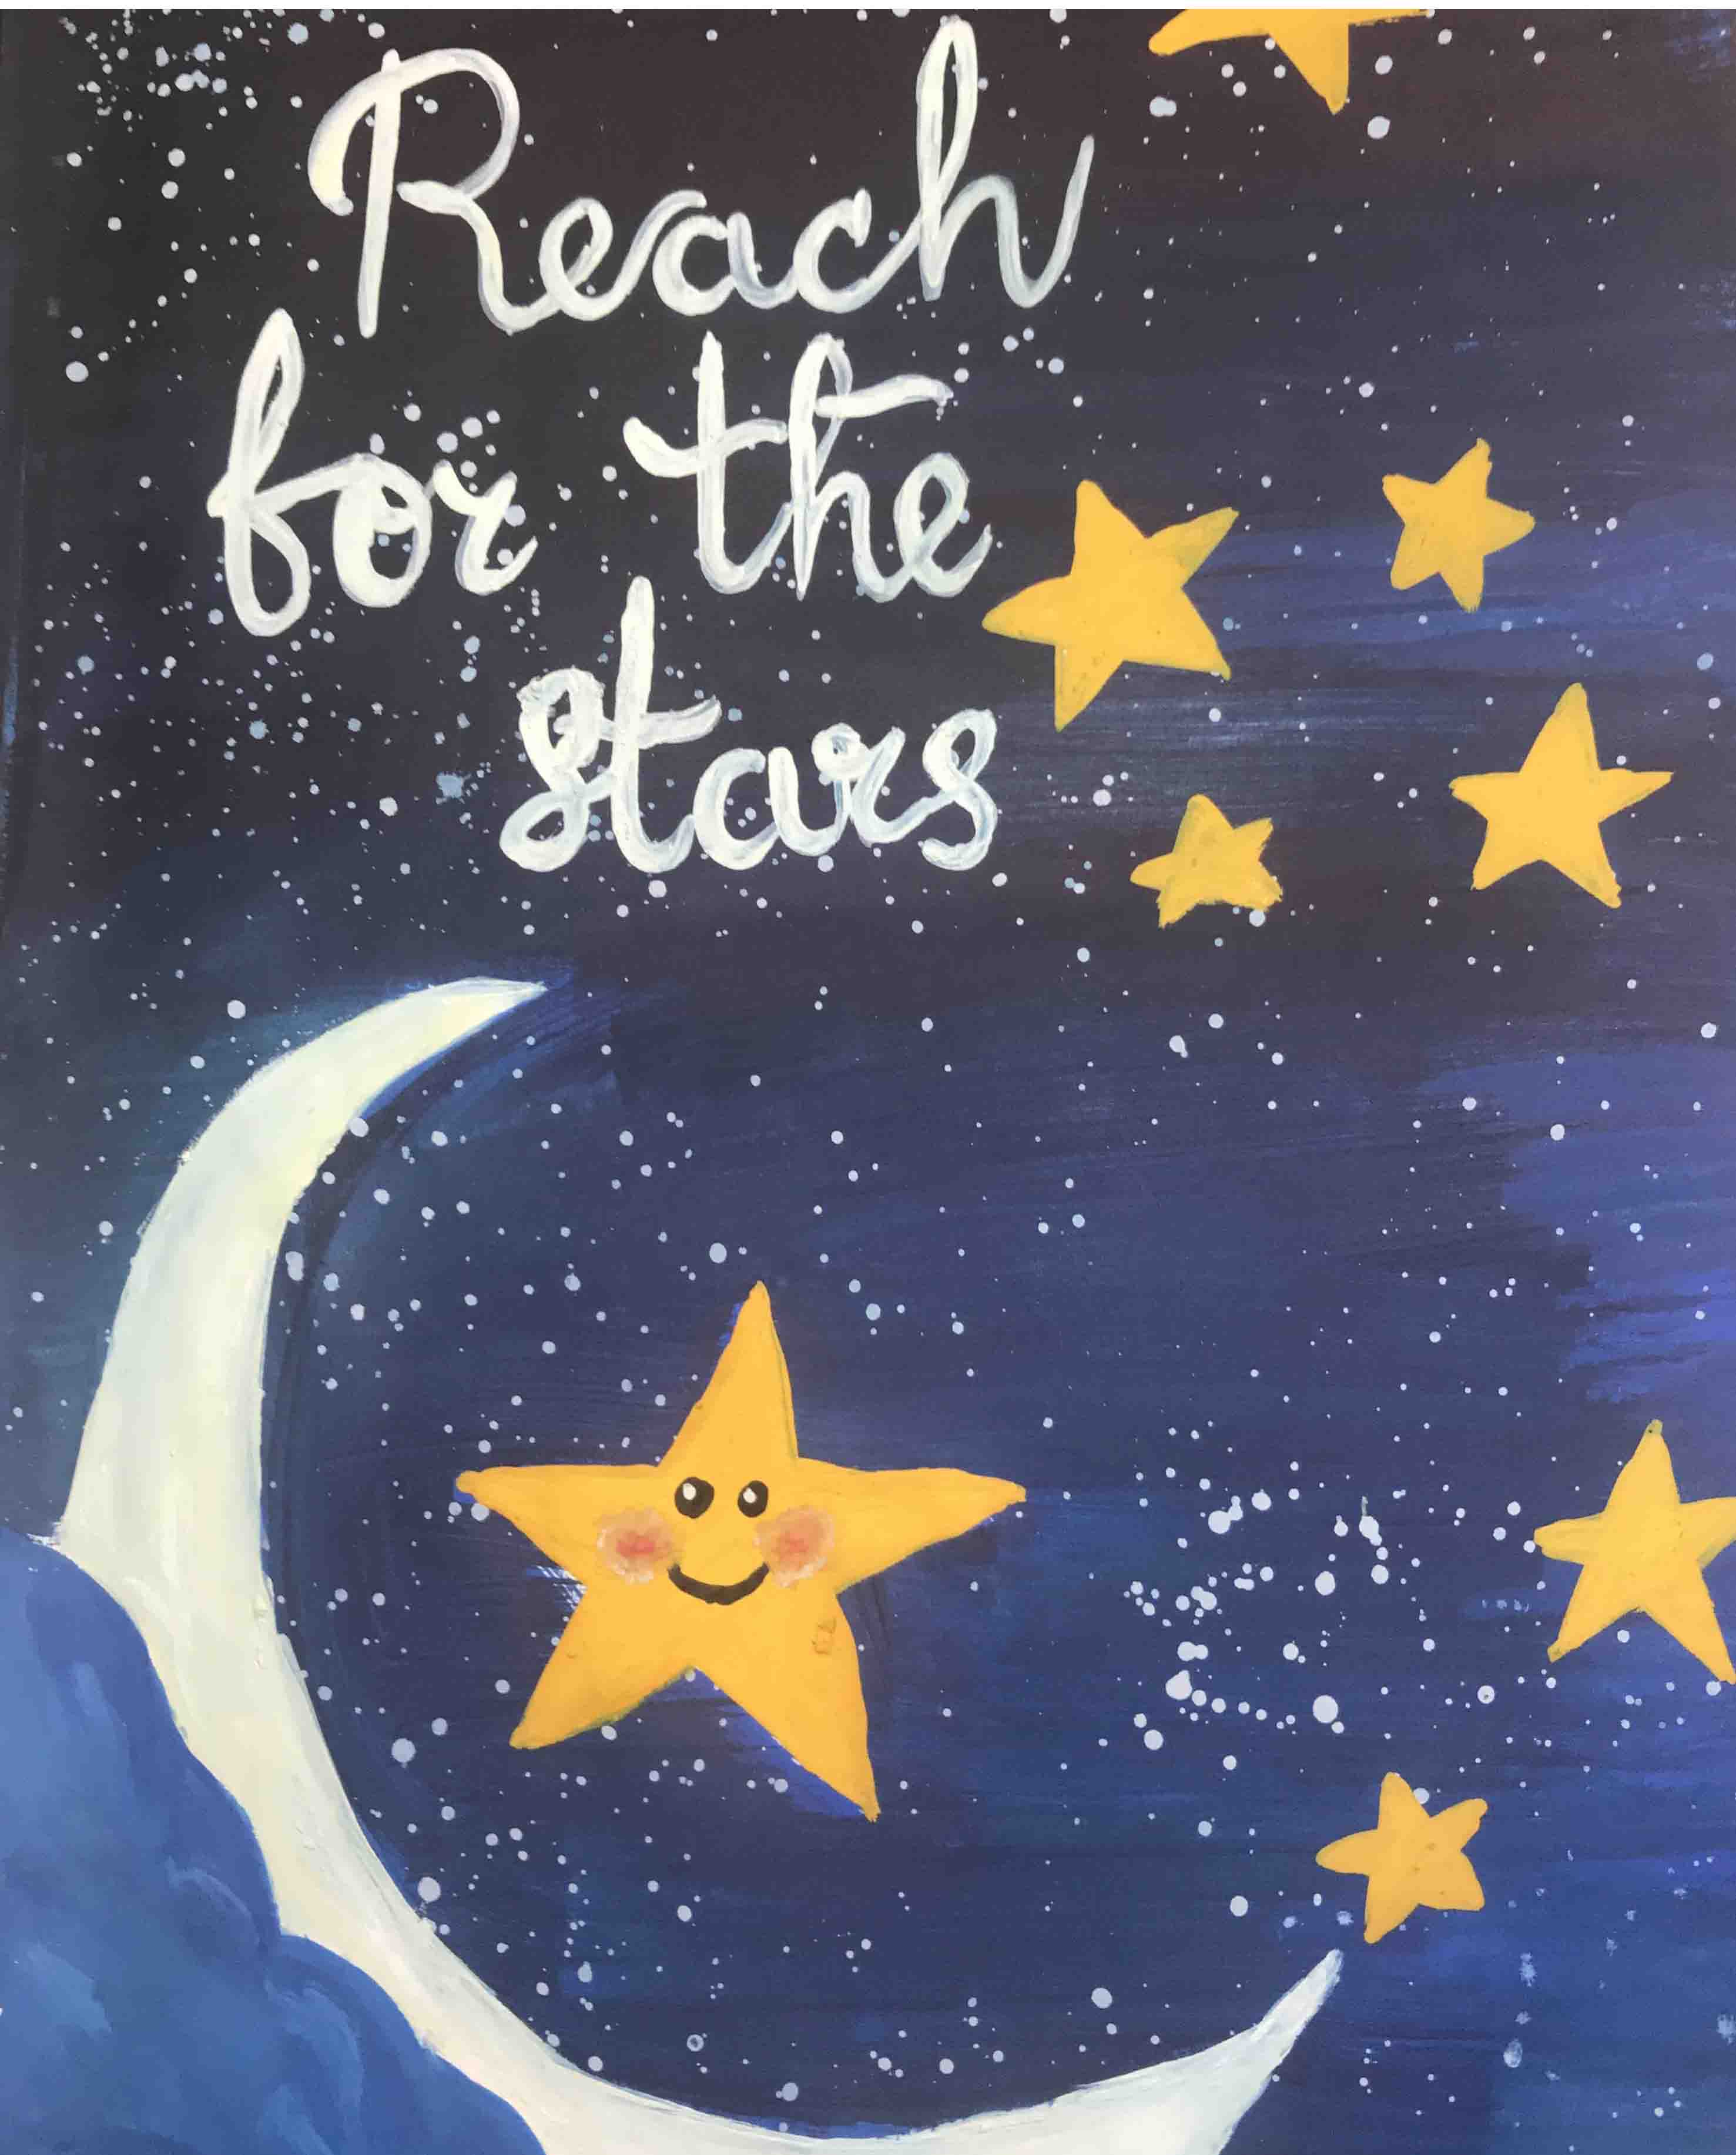 Reach
for the
stars